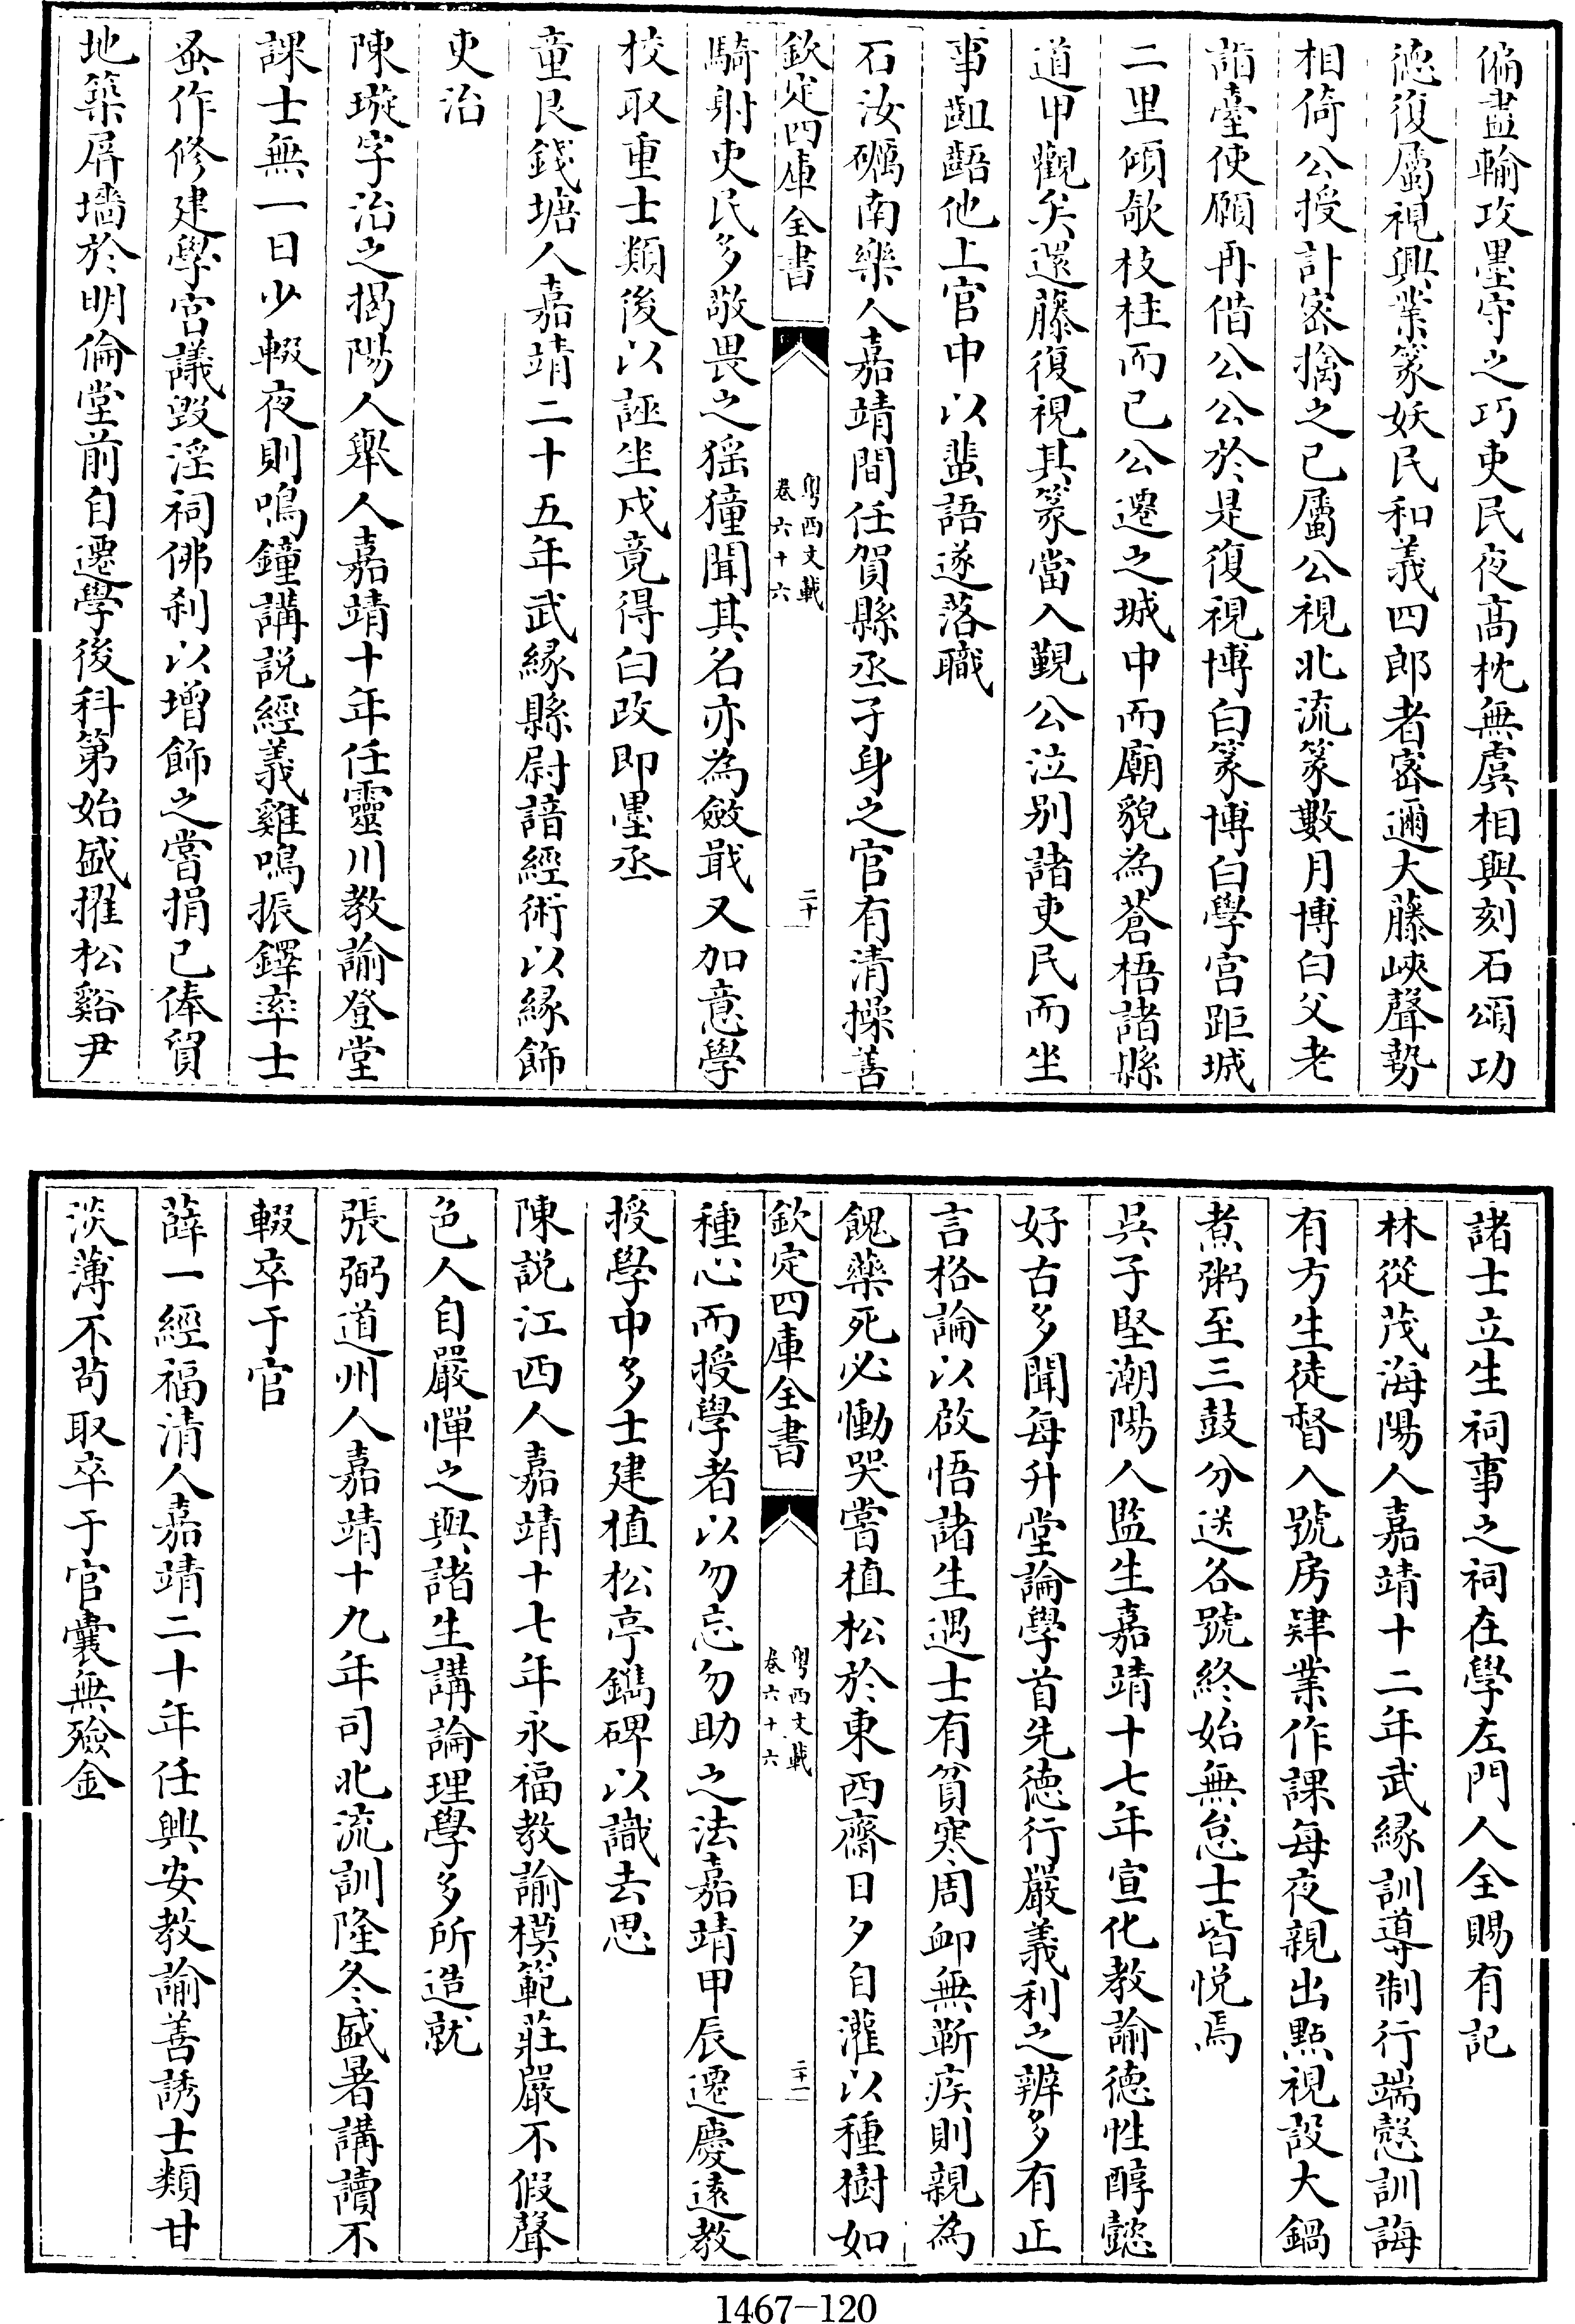 偏盡輸攻墨守之巧吏民夜髙枕無虞相與刻石頌功
徳復屬視興業篆妖民和義四郎者宻邇大藤峽聲勢
相倚公授計宻擒之已屬公視北流篆數月博白父老
詣臺使願再借公公於是復視博白篆博白學宮距城
二里傾欹枝柱而已公遷之城中而廟貌為蒼梧諸縣
道甲觀矣還藤復視其篆當入覲公泣别諸吏民而坐
事齟齬他上官中以蜚語遂落職
石汝礪南樂人嘉靖間任賀縣丞孑身之官有清操善
欽定四庫全書
粤西文載
卷六十六
二十
騎射吏民多敬畏之猺獞聞其名亦為斂戢又加意學
校取重士類後以誣坐戍竟得白改即墨丞
童艮錢塘人嘉靖二十五年武縁縣尉諳經術以緣飾
吏治
陳璇字治之揭陽人舉人嘉靖十年任靈川教諭登堂
課士無一日少輟夜則鳴鐘講説經義雞鳴振鐸率士
蚤作修建學宮議毁淫祠佛刹以增飾之嘗捐己俸貿
地築屏墻於明倫堂前自遷學後科第始盛擢松谿尹
諸士立生祠事之祠在學左門人全賜有記
林從茂海陽人嘉靖十二年武縁訓導制行端慤訓誨
有方生徒督入號房肄業作課每夜親出㸃視設大鍋
煮粥至三鼓分送各號終始無怠士皆悦焉
吳子堅潮陽人監生嘉靖十七年宣化教諭徳性醇懿
好古多聞每升堂論學首先徳行嚴義利之辨多有正
言格論以啟悟諸生遇士有貧寒周卹無靳疾則親為
餽藥死必慟哭嘗植松於東西齋日夕自灌以種樹如
欽定四庫全書
粤西文載
卷六十六
二十一
種心而授學者以勿忘勿助之法嘉靖甲辰遷慶逺教
授學中多士建植松亭鐫碑以識去思
陳説江西人嘉靖十七年永福教諭模範莊嚴不假聲
色人自嚴憚之與諸生講論理學多所造就
張弼道州人嘉靖十九年司北流訓隆冬盛暑講讀不
輟卒于官
薛一經福清人嘉靖二十年任興安教諭善誘士類甘
淡薄不茍取卒于官囊無殮金
1467-120